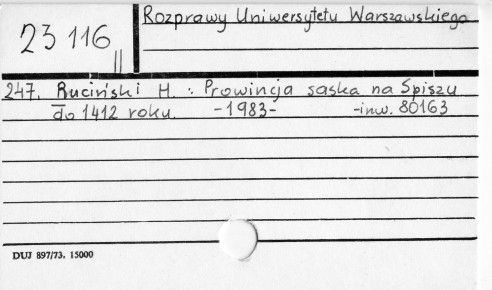 23 116
II
Rozprawy Uniwersytetu Warszawskiego
247. Ruciński H. : Prowincja saska na Spiszu
do 1412 roku. -1983- -inw. 80163
DUJ 897/73. 15000